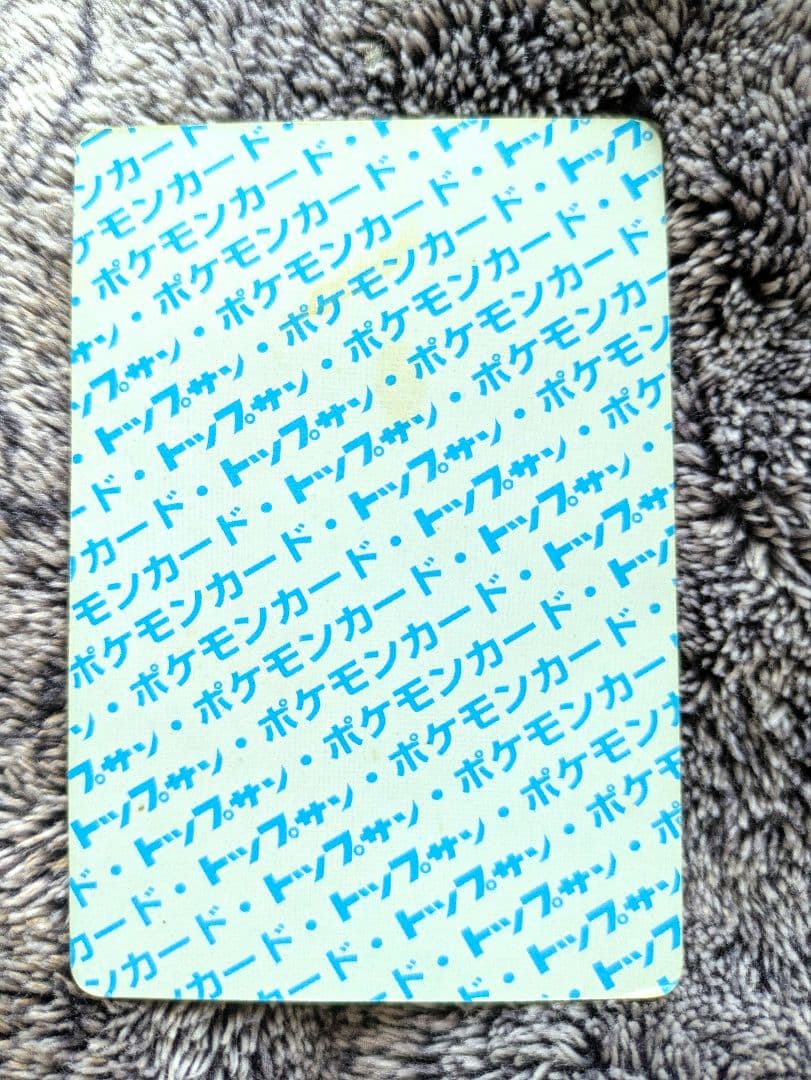 ンカード
ケモンカード・
・ポケモンカード・ト
サン・ポケモンカード・トッ
ップサン・ポケモンカード・トップ
・トップサン・ポケモンカード・トップ
ード・トップサン・ポケモンカード・トッ
カード・トップサン・ポケモンカード・
モンカード・トップサン・ポケモンカー
ポケモンカード・トップサン・ポケモン
ン・ポケモンカード・トップサン・ポケ
プサン・ポケモンカード・トップサン・
トップサン・ポケモンカード・トップサ
ド・トップサン・ポケモンカード・トップ
カード・トップサン・ポケモンカード・
ンカード・トップサン・ポケモンカー
カード・トップサン・ポケモンカ
ード・トップサン・ポケモ
ド・トップサン・ポ
・トップサン
トップ